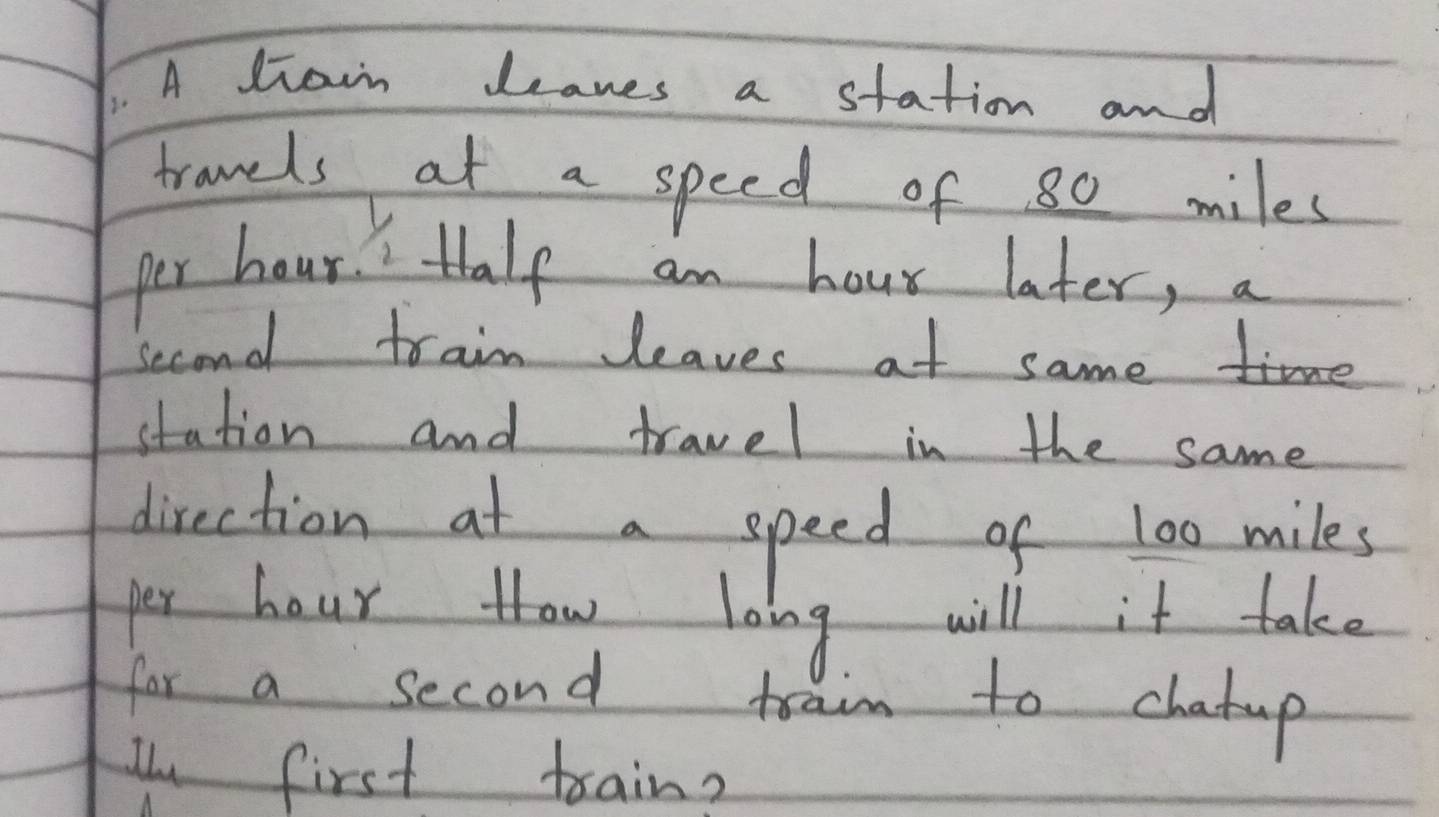 A train leaves a station and
travels at a speed of 80 miles
per hour. 1/2 Half an hour later, a
second train leaves at same time
station and travel in the same
direction at a speed of 100 miles
per hour How long will it take
for a second train to chatup
the first train?